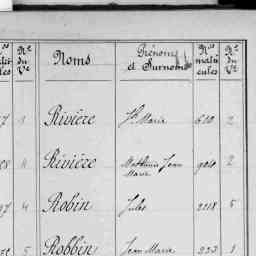 Nos matri cules Nº du Vᵉ Noms Prénoms et Surnoms Nos matri cules Nº du Vᵉ
7 1 Rivière Jh Marie 610 2
8 4 Rivière Mathurin Jean Marie 904 2
97 4 Robin Jules 2118 5
5 Robbin Jean Marie 223 1